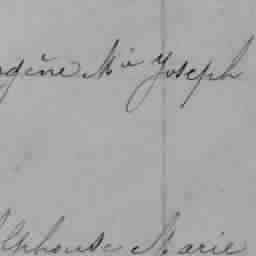 ugène Mie Joseph
Alphonse Marie